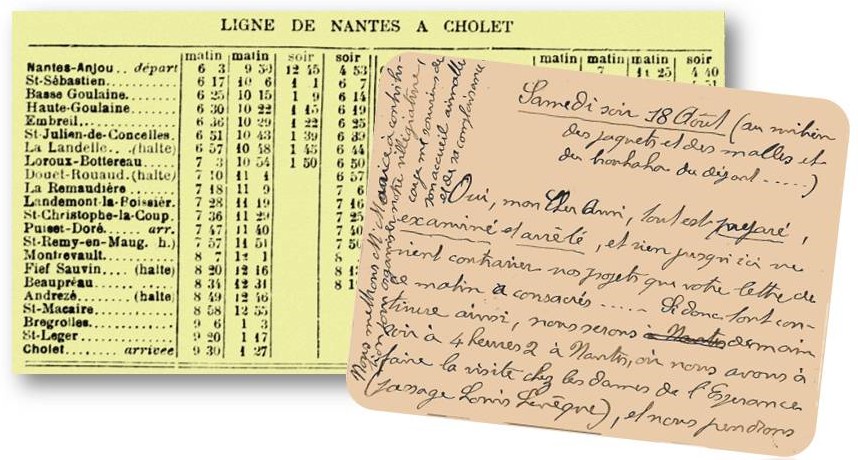 LIGNE DE NANTES A CHOLET
matin matin soir soir matin matin matin soir
Nantes-Anjou.. départ 6 3 9 50 12 45 4 53 7 11 25 4 40
St-Sébastien 6 17 10 6 1 1 6 7
Basse Goulaine 6 25 10 15 1 9 6 14
Haute-Goulaine 6 30 10 22 1 15 6 19
Embreil 6 36 10 29 1 22 6 25
St-Julien-de-Concelles 6 51 10 43 1 39 6 39
La Landelle .. (halte) 6 57 10 48 1 45 6 44
Loroux-Bottereau 7 3 10 54 1 50 6 50
Douet-Rouaud.(halte) 7 10 11 1 6 57
La Remaudière 7 18 11 9 7 6
Landemont-la-Boissièr. 7 28 11 19 7 16
St-Christophe-la-Coup. 7 36 11 29 7 25
Puiset-Doré... arr. 7 47 11 40 7 40
St-Remy-en-Maug. h.) 7 57 11 51 7 50
Montrevault 8 7 8
Fief Sauvin .... (halte) 8 20 12 16
Beaupréau 8 34 12 31 8
Andrezé (halte) 8 49 12 46
St-Macaire 8 58 12 55
Bregrolles 9 6 1 3
St-Leger 9 20 1 17
Cholet arrivée 9 30 1 27
Samedi soir 18 Août (au milieu
des paquets et des malles et
du brouhaha du départ .....)
Oui, mon Cher Ami, tout est préparé,
examiné et arrêté, et rien jusqu'ici ne
vient contrarier nos projets que votre lettre de
ce matin a consacrés ..... Si donc tout con-
tinue ainsi, nous serons à Nantes demain
soir à 4 heures 2 à Nantes, où nous avons à
faire la visite chez les dames de l'Esperance
(passage Louis Levêque), et nous prendrons
Nous mettrons M. Maurice à contribu-
tion pour organiser notre villégiature,
son accueil
et de sa complaisance